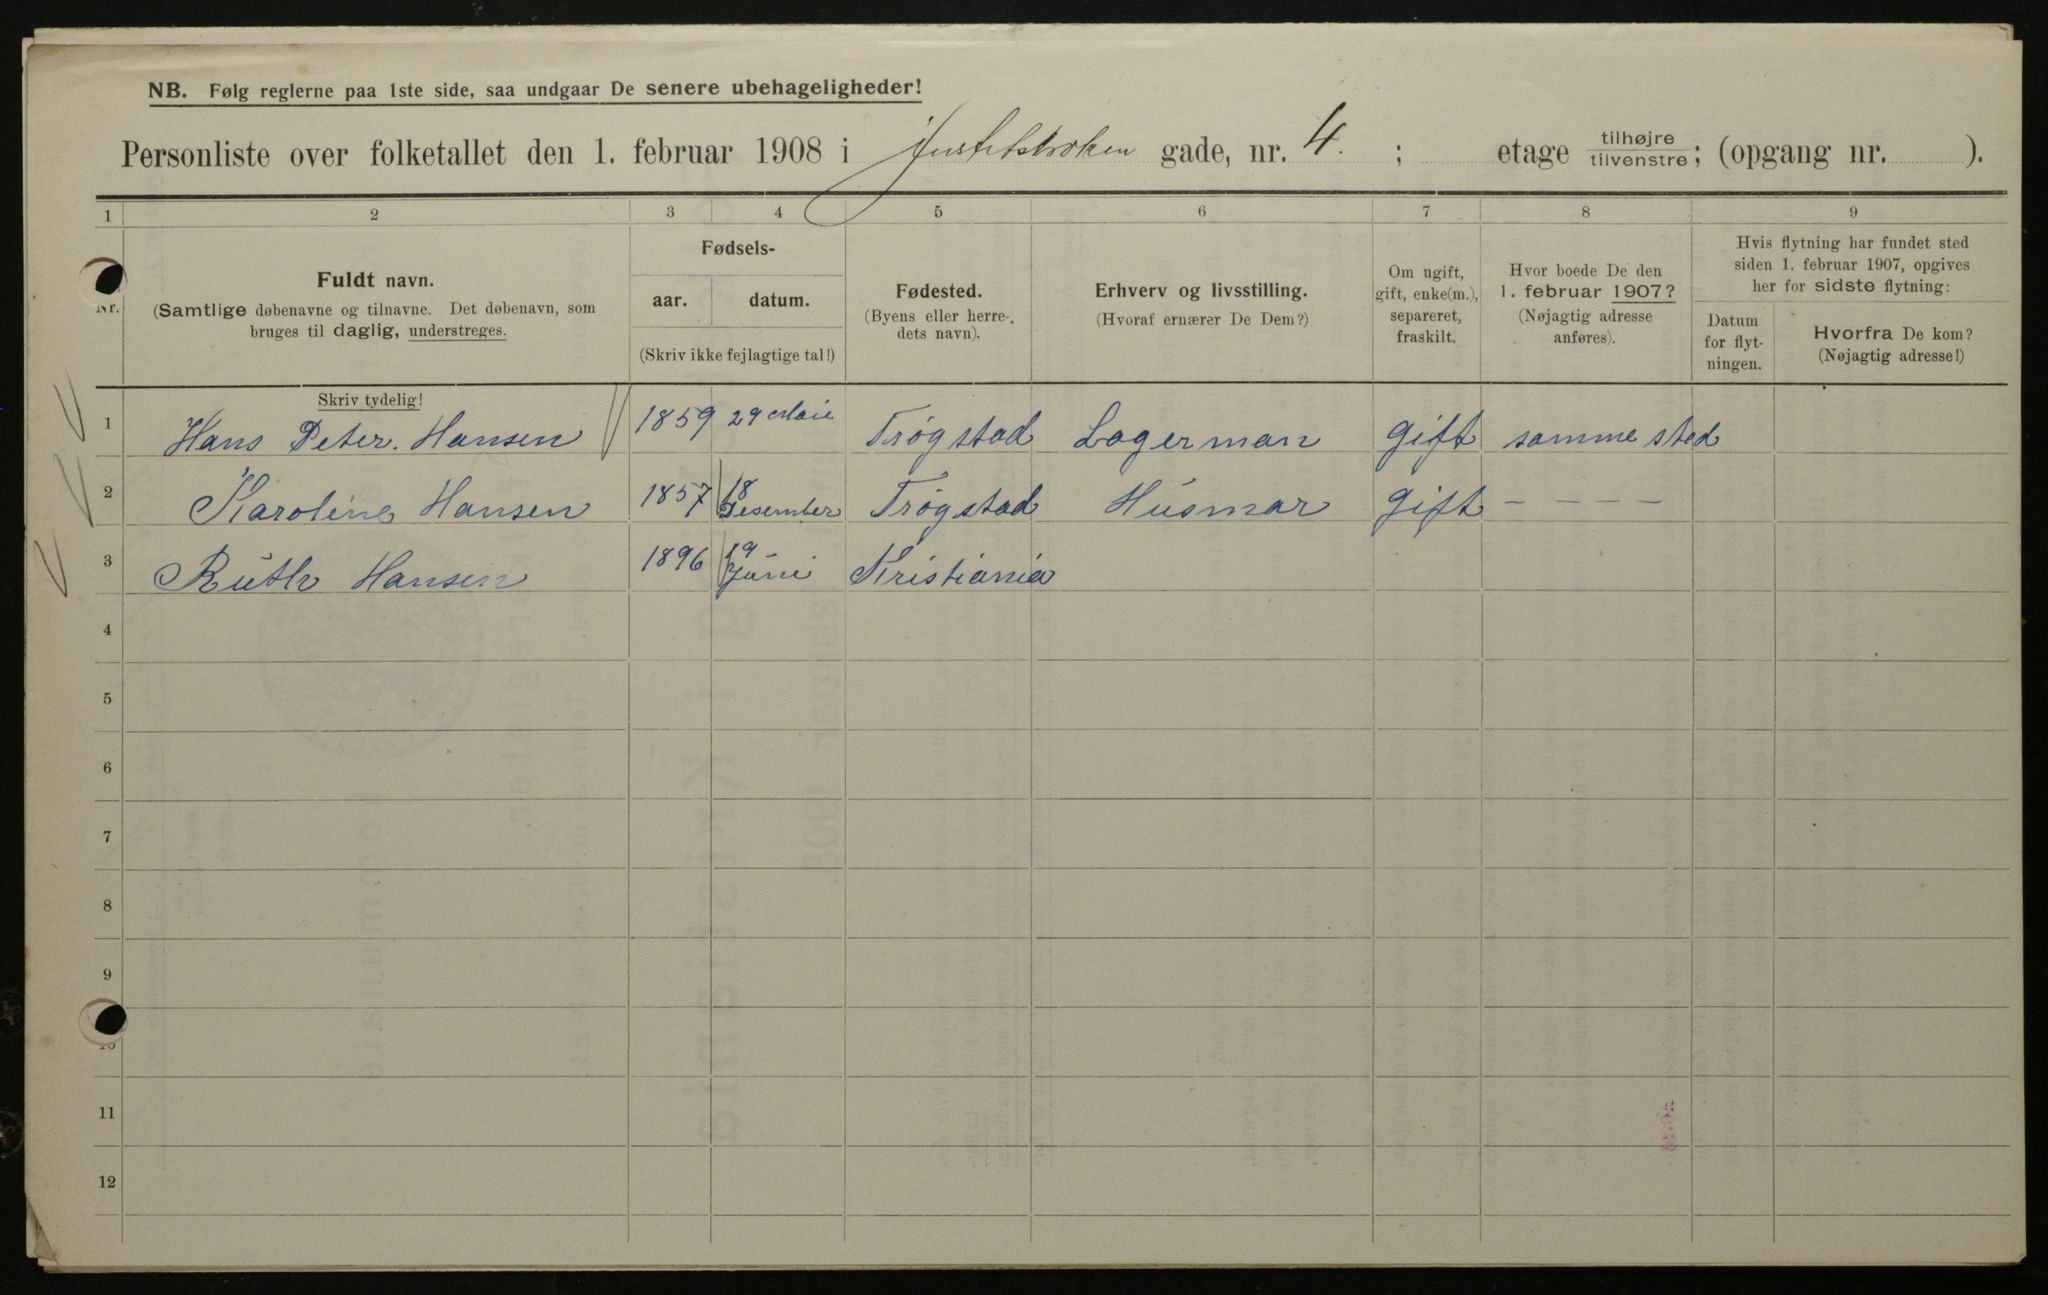 NB. Følg reglerne paa 1ste side, saa undgaar De senere ubehageligheder!
Personliste over folketallet den 1. februar 1908 i Justitskroken gade, nr. 4. ; etage tilhøjre tilvenstre; (opgang nr. ).
1 2 3 4 5 6 7 8 9
Nr.
Fuldt navn.
(Samtlige døbenavne og tilnavne. Det døbenavn, som
bruges til daglig, understreges.
Skriv tydelig!
Fødsels-
aar. datum.
(Skriv ikke fejlagtige tal!)
Fødested.
(Byens eller herre-
dets navn).
Erhverv og livsstilling.
(Hvoraf ernærer De Dem?)
Om ugift,
gift, enke(m.),
separeret,
fraskilt.
Hvor boede De den
1. februar 1907?
(Nøjagtig adresse
anføres).
Hvis flytning har fundet sted
siden 1. februar 1907, opgives
her for sidste flytning:
Datum
for flyt-
ningen.
Hvorfra De kom?
(Nøjagtig adresse!)
1 Hans Peter. Hansen 1859 29 Maie Trøgstad Lagerman gift samme sted
2 Karoline Hansen 1857 18 Desember Trøgstad Husmor gift - - - -
3 Ruth Hansen 1896 19 Juni Kristiania
4
5
6
7
8
9
10
11
12